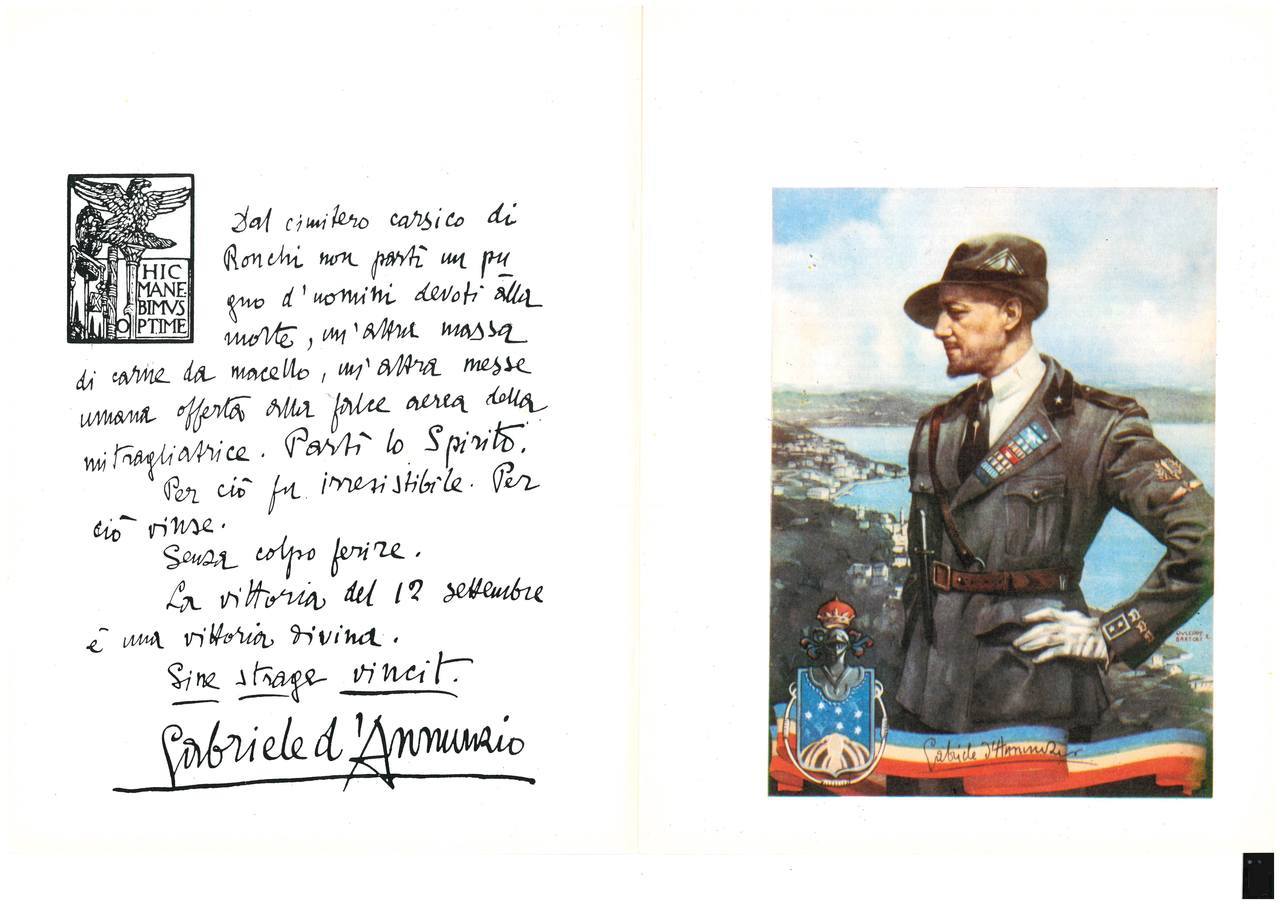 HIC
MANE-
BIMVS
OPTIME
Dal cimitero carsico di
Ronchi non partì un pu
gno d'uomini devoti alla
morte, un'altra massa
di carne da macello, un'altra messe
umana offerta alla falce aerea della
mitragliatrice. Partì lo Spirito.
Per ciò fu irresistibile. Per
ciò vinse.
Senza colpo ferire.
La vittoria del 12 settembre
è una vittoria divina.
Sine strage vincit.
Gabriele d'Annunzio
BARTOLI
Gabriele d'Annunzio